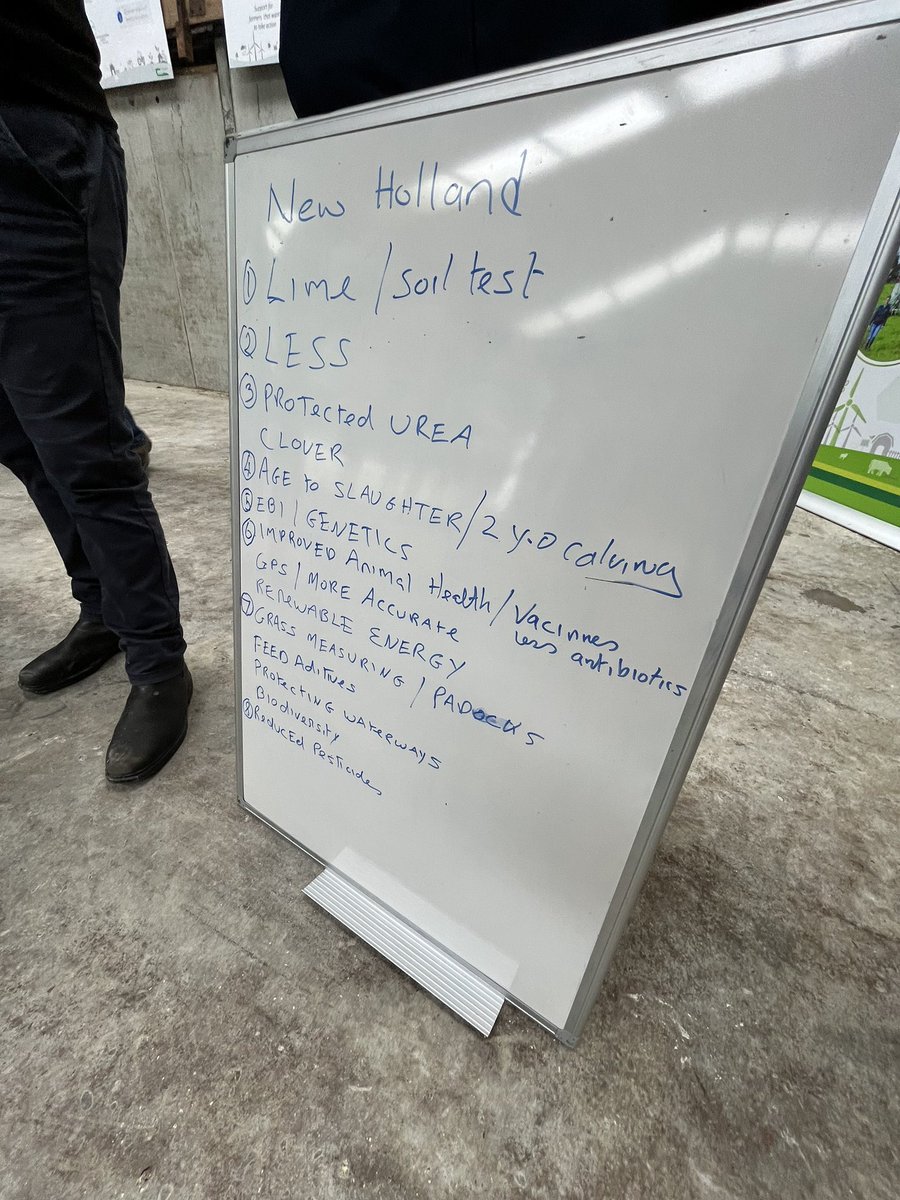 Support for
farmers that want
to take action
New Holland
① Lime / soil test
② LESS
③ PROTected UREA
CLOVER
④ AGE to SLAUGHTER / 2 y.o calving
⑤ EBI / GENETICS
⑥ IMPROVED Animal Health / Vacinnes
less antibiotics
GPS / MORE ACCURATE
RENEWABLE ENERGY
⑦ GRASS MEASURING / PADOCKS
FEED Aditives
PROTECTING WATERWAYS
Biodiversity
⑧ Reduced Pesticides